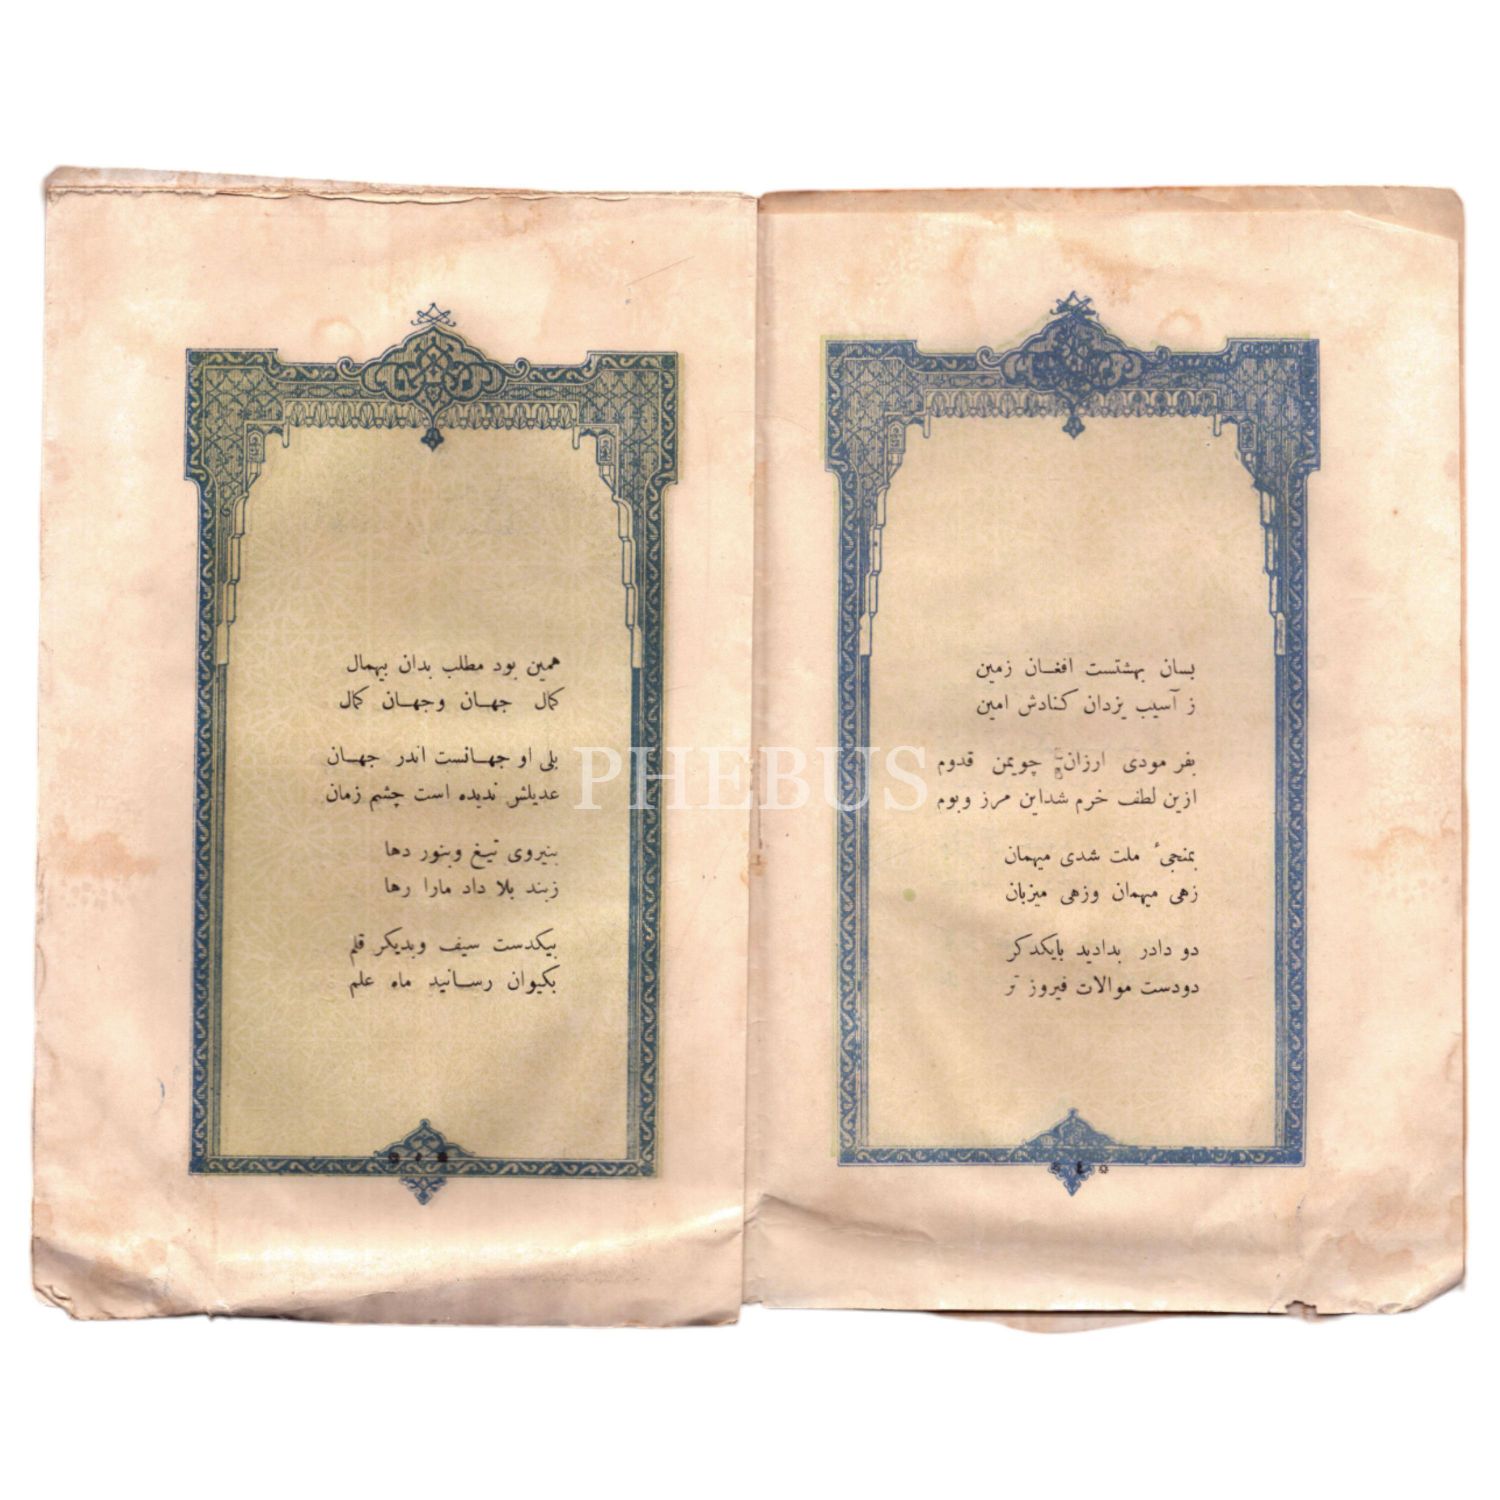 بسان بهشتست افغان زمین
ز آسیب یزدان کنادش امین
بفر مودی ارزان چویمن قدوم
ازین لطف خرم شداین مرز وبوم
بمنجیٔ ملت شدی میهمان
زهی میهمان وزهی میزبان
دو دادر بدادید بایکدکر
دودست موالات فیروز تر
همین بود مطلب بدان بیهمال
کمال جهان وجهان کمال
بلی او جهانست اندر جهان
عدیلش ندیده است چشم زمان
بنیروی تیغ وبنور دها
زبند بلا داد مارا رها
بیکدست سیف وبدیکر قلم
بکیوان رسانید ماه علم
PHEBUS